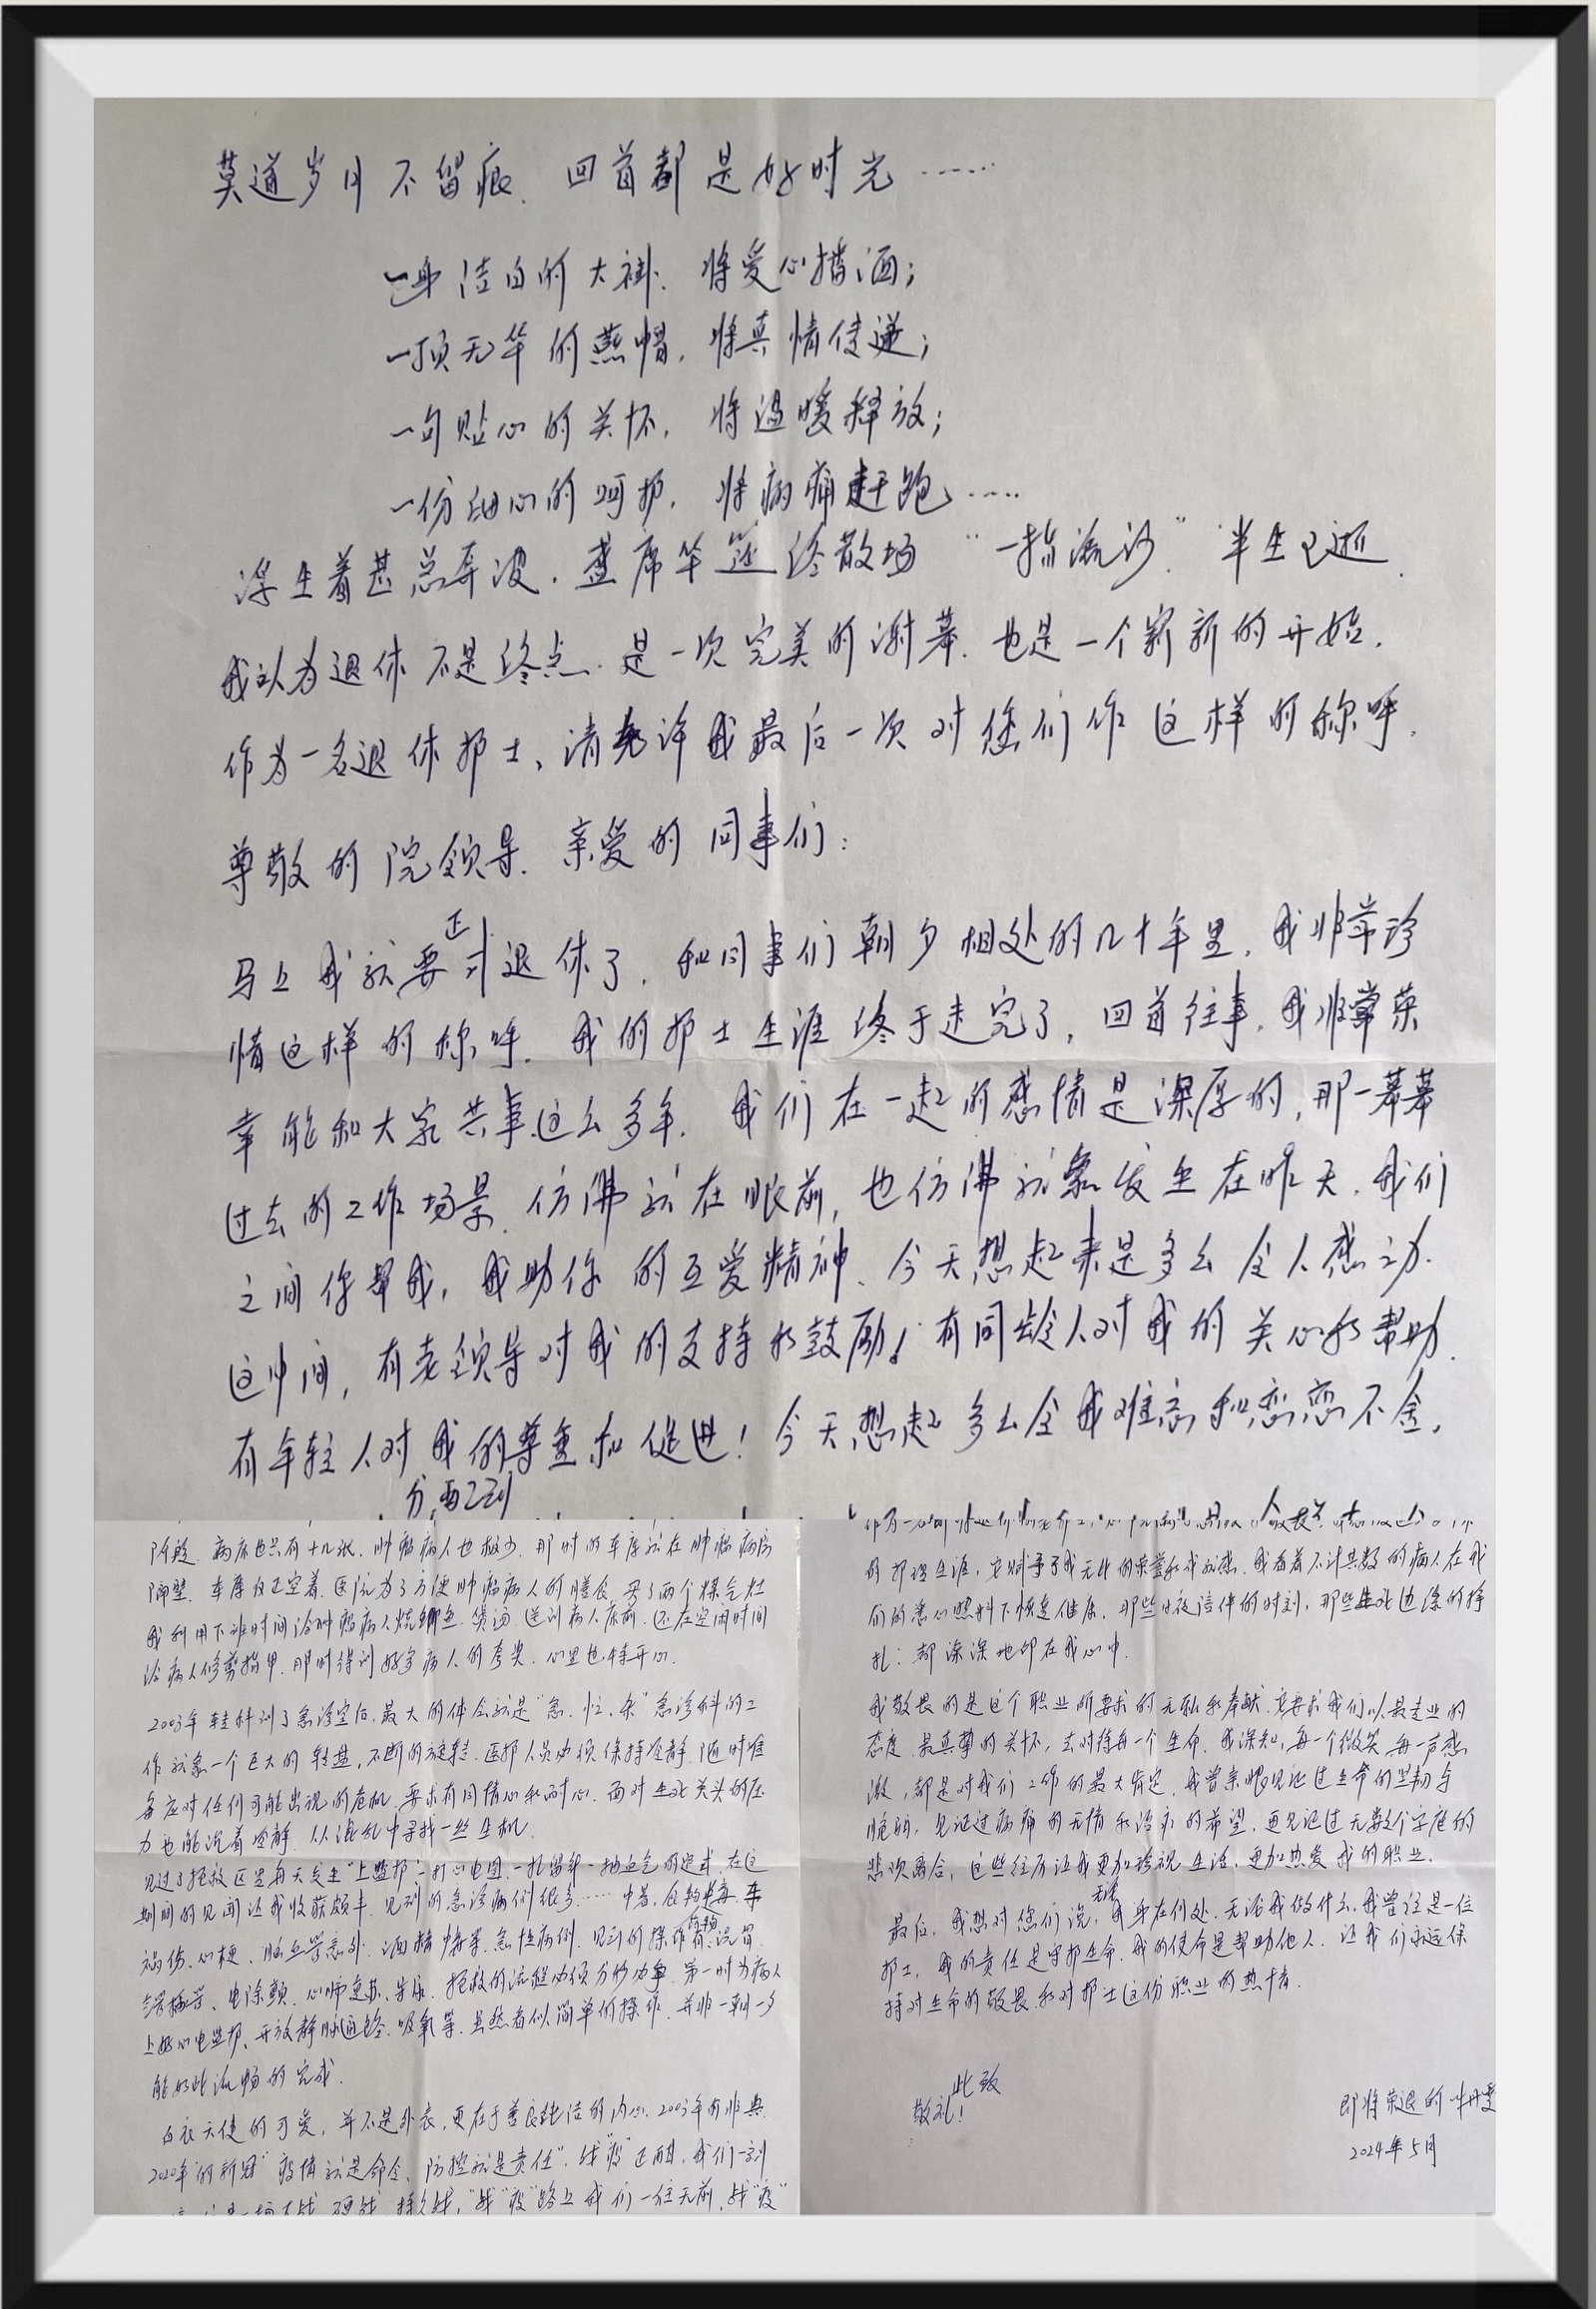 莫道岁月不留痕、回首都是好时光……
一身洁白的大褂、将爱心播洒；
一顶无华的燕帽，将真情传递；
一句贴心的关怀，将温暖释放；
一份细心的呵护，将病痛赶跑……
浮生着甚总奔波，盛席华筵终散场“一指流沙”半生已逝、
我认为退休不是终点、是一次完美的谢幕、也是一个崭新的开始，
作为一名退休护士、请允许我最后一次对您们作这样的称呼，
尊敬的院领导、亲爱的同事们：
马上我就要正式退休了，和同事们朝夕相处的几十年里，我非常珍
惜这样的称呼，我的护士生涯终于走完了，回首往事，我非常荣
幸能和大家共事这么多年，我们在一起的感情是深厚的，那一幕幕
过去的工作场景、仿佛就在眼前，也仿佛就象发生在昨天，我们
之间你帮我，我助你的互爱精神、今天想起来是多么令人感动、
这中间，有老领导对我的支持和鼓励！有同龄人对我的关心和帮助、
有年轻人对我的尊重和促进！今天想起多么令我难忘和恋恋不舍，
分两个到
阶段，病床也只有十几张，肿瘤病人也极少，那时的车库就在肿瘤病房
隔壁，车库仅正空着，医院为了方便肿瘤病人的膳食，买了两个煤气灶
我利用下班时间治肿瘤病人烧鲫鱼、煲汤、送到病人床前，还在空闲时间
治病人修剪指甲，那时得到好多病人的夸奖，心里也特开心、
2003年转科到了急诊室后，最大的体会就是“急、忙、杂”急诊科的工
作就象一个巨大的转盘，不断的旋转，医护人员必须保持冷静，随时准
备应对任何可能出现的危机，要求有同情心和耐心，面对生死关头的压
力也能沉着冷静，从混乱中寻找一丝生机、
见过了抢救区里每天发生“上监护－打心电图－扎留针－抽血气的定式，在这
期间的见闻让我收获颇丰，见到的急诊病例很多……中暑，食物中毒，车
祸伤、心梗、脑血管意外、酒精中毒等急性病例，见到的操作有洗胃
气管插管、电除颤、心肺复苏、导尿，抢救的流程必须分秒必争，第一时为病人
上好心电监护、开放静脉通路、吸氧等，虽然看似简单的操作，并非一朝一夕
能如此流畅的完成、
白衣天使的可爱，并不是外表，更在于善良纯洁的内心、2003年的非典
2020年的新冠“疫情就是命令、防控就是责任”，战“疫”正酣，我们一刻
战“疫”路上我们一往无前，战“疫”
的护理生涯，它赋予了我无比的荣誉和成就感，我看着不计其数的病人在我
们的悉心照料下恢复健康，那些日夜陪伴的时刻，那些生死边缘的挣
扎：都深深地印在我心中、
我敬畏的是这个职业所要求的无私和奉献，它要求我们以最专业的
态度、最真挚的关怀，去对待每一个生命，我深知，每一个微笑，每一声感
激，都是对我们工作的最大肯定，我曾亲眼见证过生命的坚韧与
脆弱，见证过病痛的无情和治疗的希望，更见证过无数个家庭的
悲欢离合，这些经历让我更加珍视生活，更加热爱我的职业、
最后，我想对您们说，无论我身在何处、无论我做什么，我曾经是一位
护士，我的责任是守护生命，我的使命是帮助他人，让我们永远保
持对生命的敬畏，和对护士这份职业的热情、
此致
敬礼！
即将荣退的
2024年5月